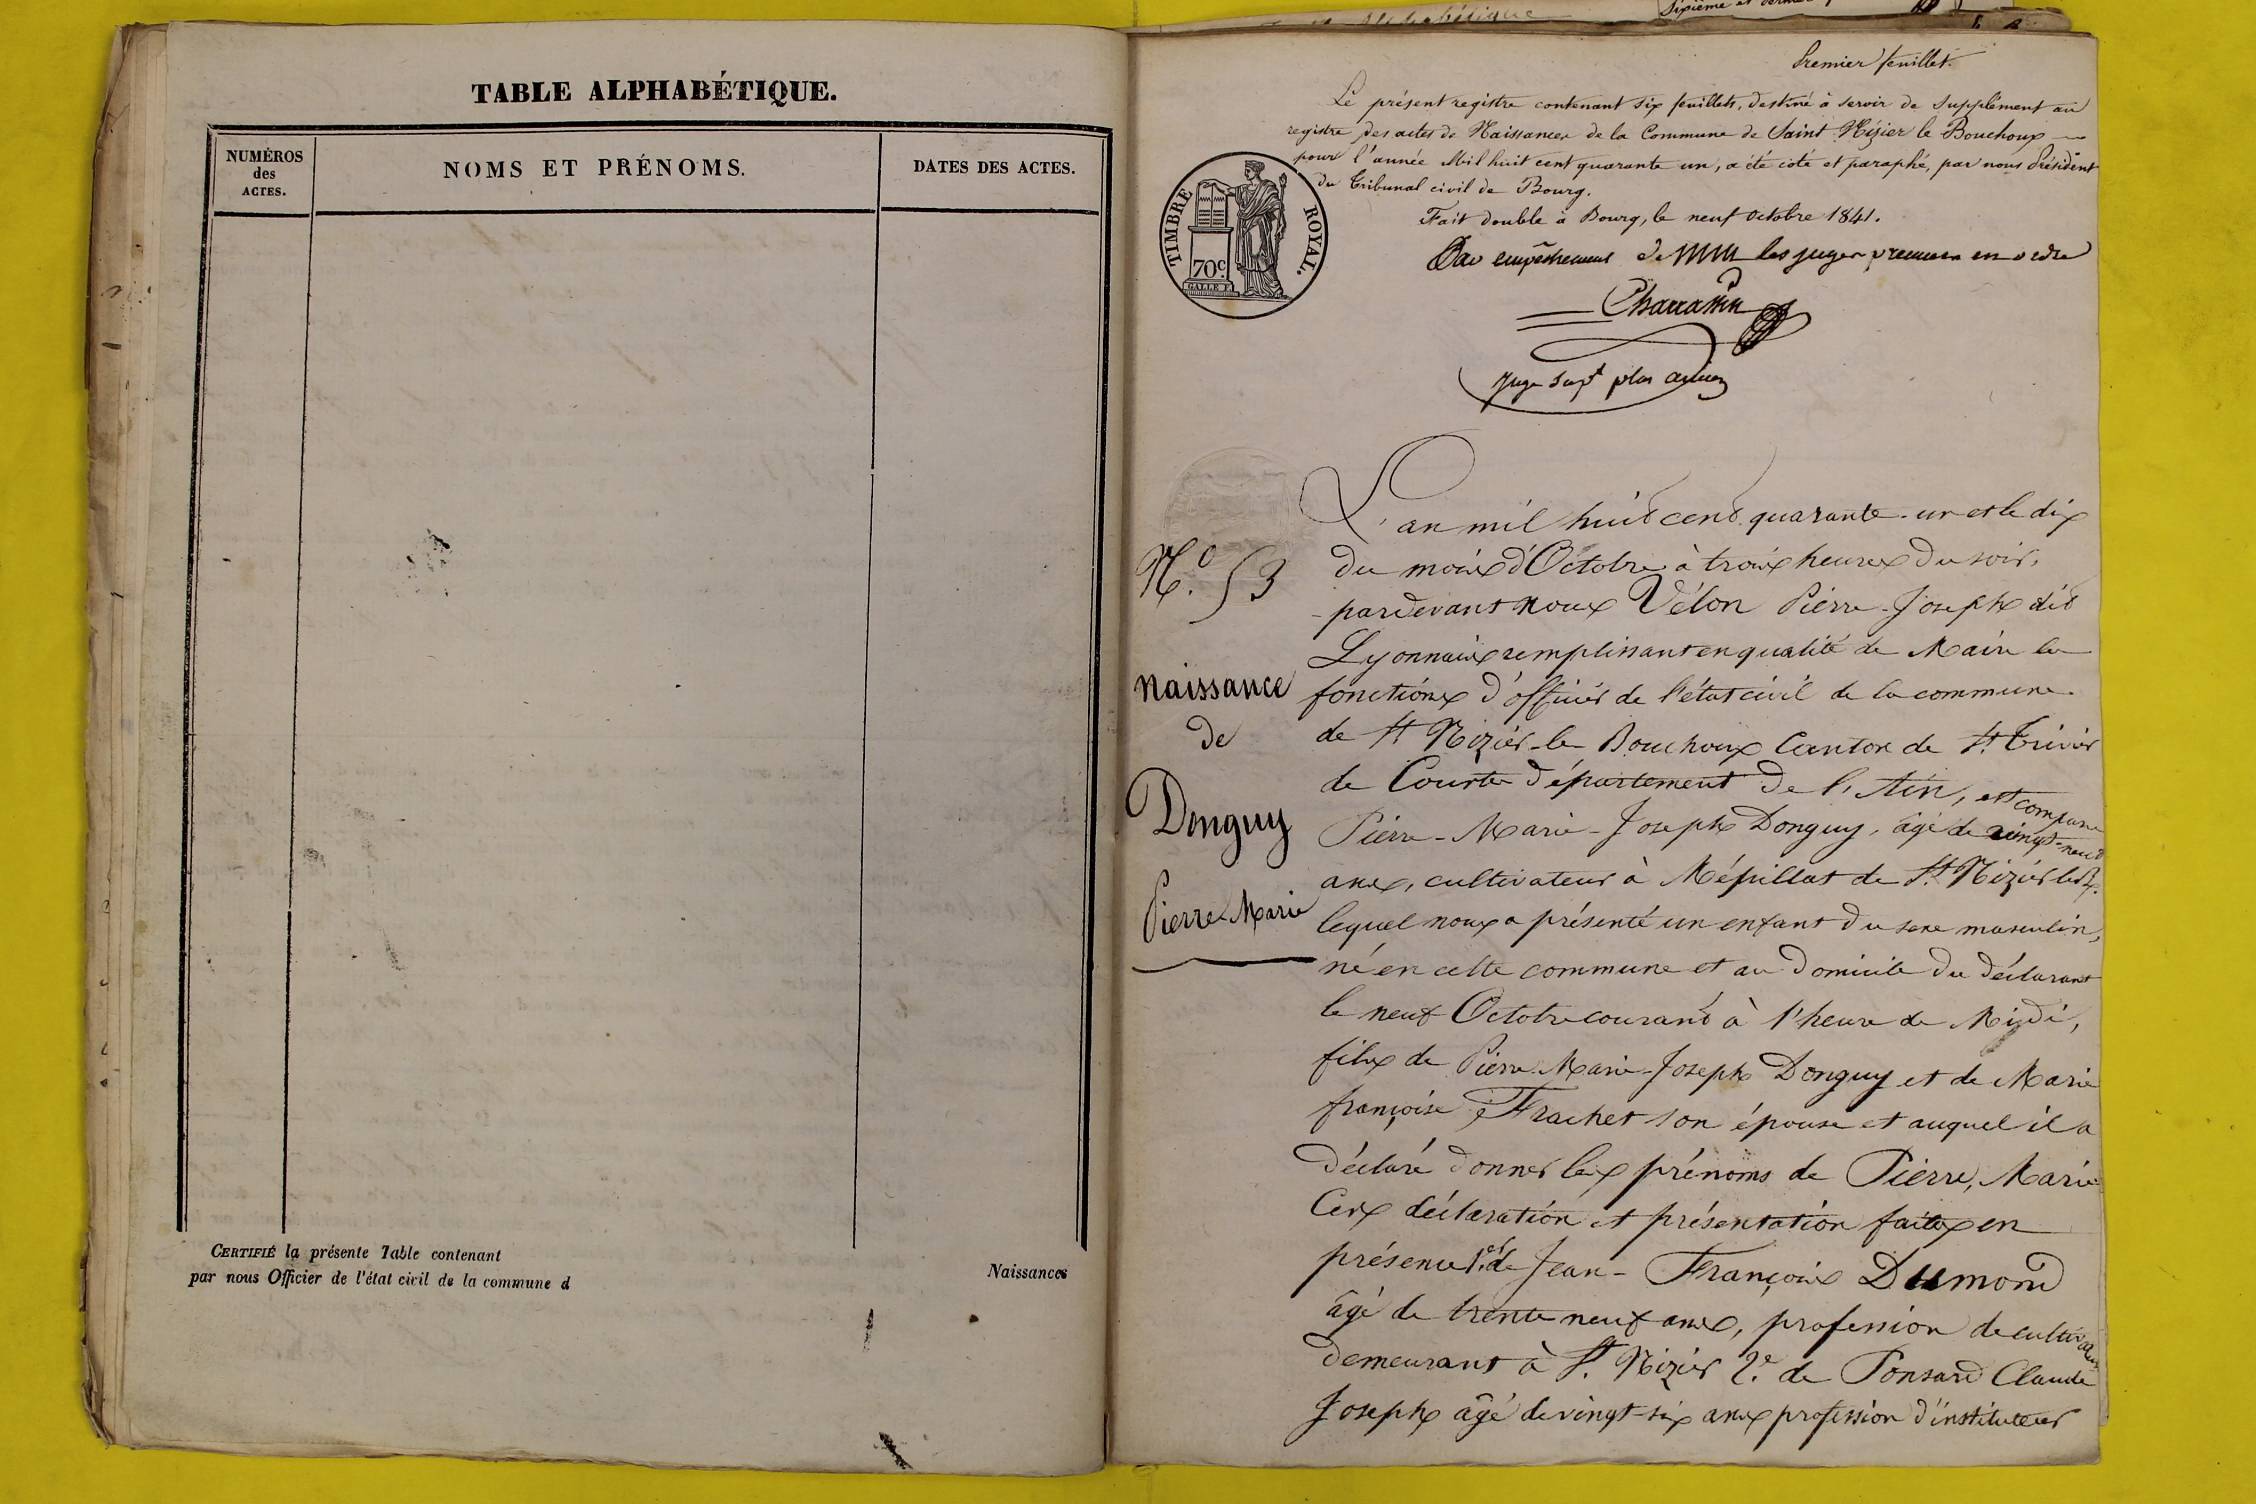 TABLE ALPHABÉTIQUE.
NUMÉROS
des
ACTES.
NOMS ET PRÉNOMS.
DATES DES ACTES.
CERTIFIÉ la présente Table contenant
par nous Officier de l'état civil de la commune d
Naissances
Sixième et dernier
Premier feuillet.
Le présent registre contenant six feuillets, destiné à servir de supplément au
registre des actes de Naissances de la Commune de Saint Nizier le Bouchoux
pour l'année Mil huit cent quarante un, a été coté et paraphé, par nous Président
du Tribunal civil de Bourg.
Fait double à Bourg, le neuf octobre 1841.
Par empêchement de MM les juges premiers en ordre
Charrassin
juge supt plus ancien
TIMBRE ROYAL.
70c.
L'an mil huit cent quarante-un et le dix
du mois d'Octobre à trois heures du soir,
pardevant nous Vélon Pierre-Joseph dit
Lyonnais remplissant en qualité de Maire les
fonctions d'officier de l'état civil de la commune
de St Nizier-le-Bouchoux Canton de St Trivier
de Courtes département de l'Ain, est comparu
Pierre-Marie-Joseph Donguy, âgé de vingt-neuf
ans, cultivateur à Mépillat de St Nizier le Bx.
lequel nous a présenté un enfant du sexe masculin,
né en cette commune et au domicile du déclarant
le neuf Octobre courant à l'heure de Midi,
fils de Pierre-Marie-Joseph Donguy et de Marie
françoise Frachet son épouse et auquel il a
déclaré donner les prénoms de Pierre, Marie
Ces déclaration et présentation faites en
présence 1er de Jean-François Dumond
âgé de trente neuf ans, profession de cultivateur
demeurant à St. Nizier 2e. de Ponsard Claude
Joseph âgé de vingt-six ans profession d'instituteur
No. 53
naissance
de
Donguy
Pierre-Marie